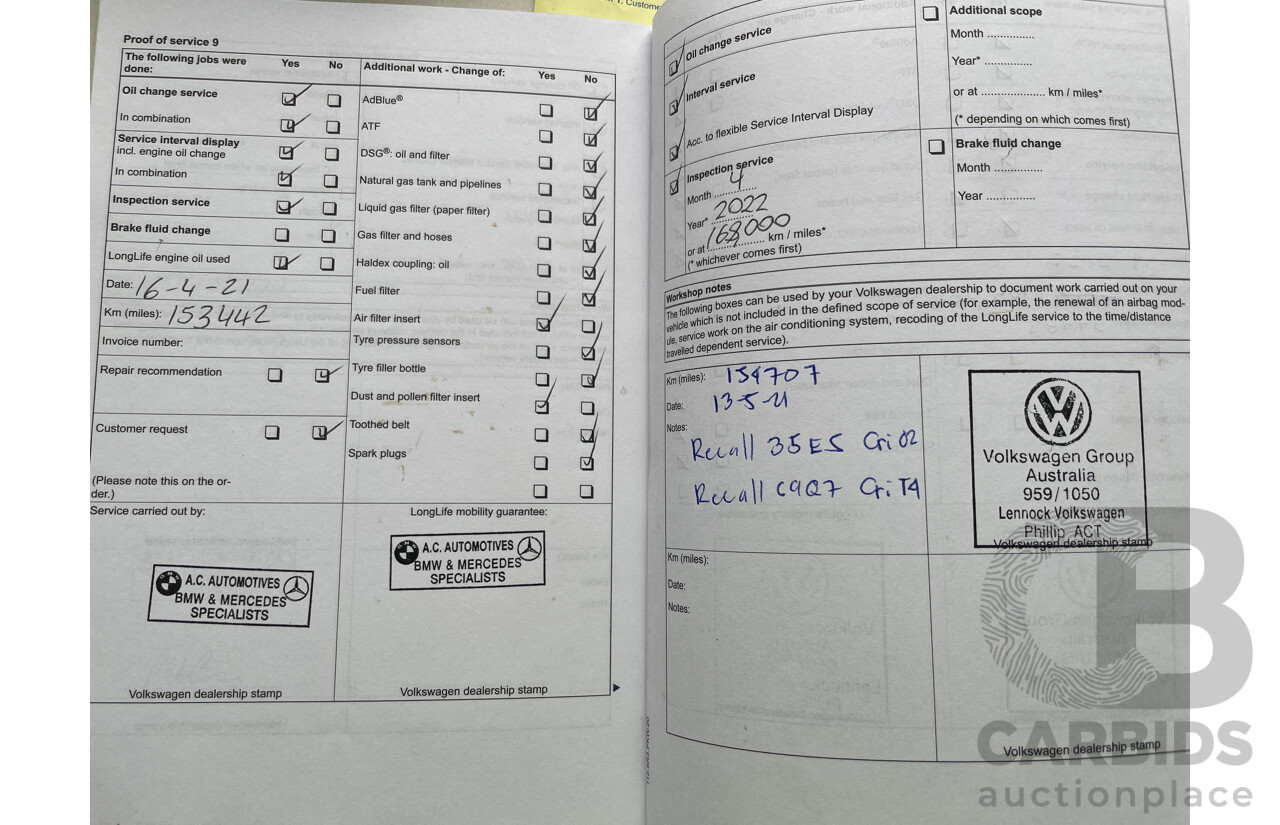 1. Custome
Proof of service 9
The following jobs were done: Yes No
Oil change service
In combination
Service interval display
incl. engine oil change
In combination
Inspection service
Brake fluid change
LongLife engine oil used
Date: 16-4-21
Km (miles): 153442
Invoice number:
Repair recommendation
Customer request
(Please note this on the or-
der.)
Additional work - Change of: Yes No
AdBlue®
ATF
DSG®: oil and filter
Natural gas tank and pipelines
Liquid gas filter (paper filter)
Gas filter and hoses
Haldex coupling: oil
Fuel filter
Air filter insert
Tyre pressure sensors
Tyre filler bottle
Dust and pollen filter insert
Toothed belt
Spark plugs
Service carried out by:
A.C. AUTOMOTIVES
BMW & MERCEDES
SPECIALISTS
Volkswagen dealership stamp
LongLife mobility guarantee:
A.C. AUTOMOTIVES
BMW & MERCEDES
SPECIALISTS
Volkswagen dealership stamp
Oil change service
Interval service
Acc. to flexible Service Interval Display
Inspection service
Month 4
Year* 2022
or at 168000 km / miles*
(* whichever comes first)
Additional scope
Month ..............
Year* ..............
or at .................... km / miles*
(* depending on which comes first)
Brake fluid change
Month ..............
Year ..............
Workshop notes
The following boxes can be used by your Volkswagen dealership to document work carried out on your
vehicle which is not included in the defined scope of service (for example, the renewal of an airbag mod-
ule, service work on the air conditioning system, recoding of the LongLife service to the time/distance
travelled dependent service).
Km (miles): 154707
Date: 13-5-21
Notes:
Recall 35E5 Cri 02
Recall C9Q7 Cri T4
Volkswagen Group
Australia
959/1050
Lennock Volkswagen
Phillip ACT
Volkswagen dealership stamp
Km (miles):
Date:
Notes:
Volkswagen dealership stamp
CB
CARBIDS
auctionplace